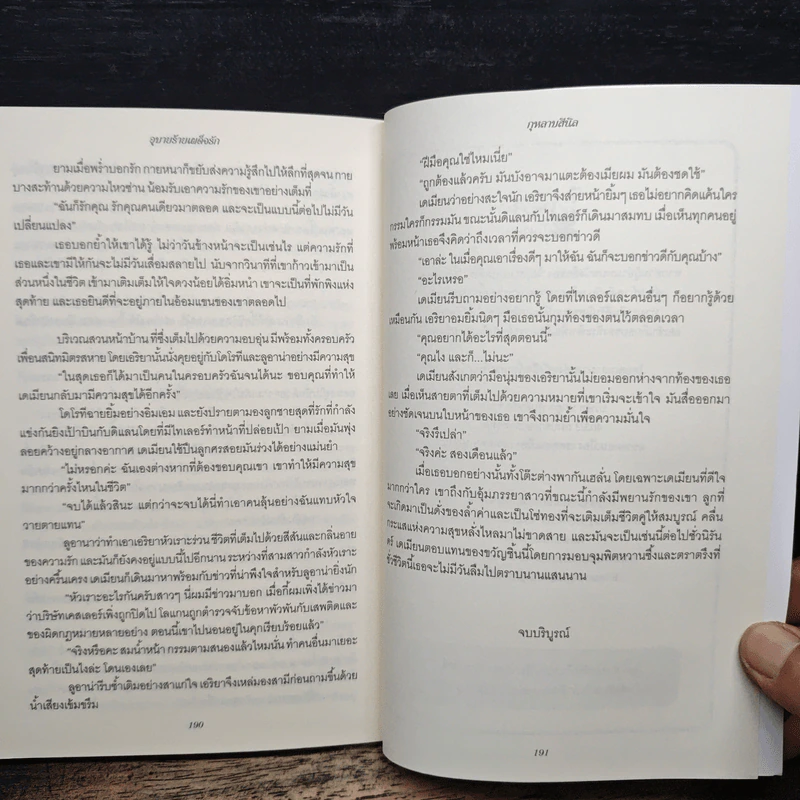 อุบายร้ายเผด็จรัก
ยามเมื่อพร่ำบอกรัก กายหนาก็ขยับส่งความรู้สึกไปให้ลึกที่สุดจน กาย
บางสะท้านด้วยความไหวซ่าน น้อมรับเอาความรักของเขาอย่างเต็มที่
“ฉันก็รักคุณ รักคุณคนเดียวมาตลอด และจะเป็นแบบนี้ต่อไปไม่มีวัน
เปลี่ยนแปลง”
เธอบอกย้ำให้เขาได้รู้ ไม่ว่าวันข้างหน้าจะเป็นเช่นไร แต่ความรักที่
เธอและเขามีให้กันจะไม่มีวันเสื่อมสลายไป นับจากวินาทีที่เขาก้าวเข้ามาเป็น
ส่วนหนึ่งในชีวิต เข้ามาเติมเต็มให้ใจดวงน้อยได้อิ่มหนำ เขาจะเป็นที่พักพิงแห่ง
สุดท้าย และเธอยินดีที่จะอยู่ภายในอ้อมแขนของเขาตลอดไป
บริเวณสวนหน้าบ้าน ที่ซึ่งเต็มไปด้วยความอบอุ่น มีพร้อมทั้งครอบครัว
เพื่อนสนิทมิตรสหาย โดยเอริยานั้นนั่งคุยอยู่กับโดโรทีและลูอาน่าอย่างมีความสุข
“ในสุดเธอก็ได้มาเป็นคนในครอบครัวฉันจนได้นะ ขอบคุณที่ทำให้
เดเมียนกลับมามีความสุขได้อีกครั้ง”
โดโรทีฉายยิ้มอย่างอิ่มเอม และยังปรายตามองลูกชายสุดที่รักที่กำลัง
แข่งกันยิงเป้าบินกับดิแลนโดยที่มีไทเลอร์ทำหน้าที่ปล่อยเป้า ยามเมื่อมันพุ่ง
ลอยคว้างอยู่กลางอากาศ เดเมียนใช้ปืนลูกศรสอยมันร่วงได้อย่างแม่นยำ
“ไม่หรอกค่ะ ฉันเองต่างหากที่ต้องขอบคุณเขา เขาทำให้มีความสุข
มากกว่าครั้งไหนในชีวิต”
“จบได้แล้วสินะ แต่กว่าจะจบได้นี่ทำเอาคนลุ้นอย่างฉันแทบหัวใจ
วายตายแทน”
ลูอาน่าว่าทำเอาเอริยาหัวเราะร่วน ชีวิตที่เต็มไปด้วยสีสันและกลิ่นอาย
ของความรัก และมันก็ยังคงอยู่แบบนี้ไปอีกนาน ระหว่างที่สามสาวกำลังหัวเราะ
อย่างครื้นเครง เดเมียนก็เดินมาหาพร้อมกับข่าวที่น่าพึงใจสำหรับลูอาน่ายิ่งนัก
“หัวเราะอะไรกันครับสาวๆ นี่ผมมีข่าวมาบอก เมื่อกี้ผมเพิ่งได้ข่าวมา
ว่าบริษัทเคสเลอร์เพิ่งถูกปิดไป โลแกนถูกตำรวจจับข้อหาพัวพันกับเสพติดและ
ของผิดกฎหมายหลายอย่าง ตอนนี้เขาไปนอนอยู่ในคุกเรียบร้อยแล้ว”
“จริงหรือคะ สมน้ำหน้า กรรมตามสนองแล้วไหมนั่น ทำคนอื่นมาเยอะ
สุดท้ายเป็นไงล่ะ โดนเองเลย”
ลูอาน่ารีบซ้ำเติมอย่างสาแก่ใจ เอริยาจึงเหล่มองสามีก่อนถามขึ้นด้วย
น้ำเสียงเข้มขรึม
190
กุหลาบสีนิล
“ฝีมือคุณใช่ไหมเนี่ย”
“ถูกต้องแล้วครับ มันบังอาจมาแตะต้องเมียผม มันต้องชดใช้”
เดเมียนว่าอย่างสะใจนัก เอริยาจึงส่ายหน้ายิ้มๆ เธอไม่อยากคิดแค้นใคร
กรรมใครก็กรรมมัน ขณะนั้นดิแลนกับไทเลอร์ก็เดินมาสมทบ เมื่อเห็นทุกคนอยู่
พร้อมหน้าเธอจึงคิดว่าถึงเวลาที่ควรจะบอกข่าวดี
“เอาล่ะ ในเมื่อคุณเอาเรื่องดีๆ มาให้ฉัน ฉันก็จะบอกข่าวดีกับคุณบ้าง”
“อะไรเหรอ”
เดเมียนรีบถามอย่างอยากรู้ โดยที่ไทเลอร์และคนอื่นๆ ก็อยากรู้ด้วย
เหมือนกัน เอริยาอมยิ้มนิดๆ มือเธอนั้นกุมท้องของตนไว้ตลอดเวลา
“คุณอยากได้อะไรที่สุดตอนนี้”
“คุณไง และก็...ไม่นะ”
เดเมียนสังเกตว่ามือนุ่มของเอริยานั้นไม่ยอมออกห่างจากท้องของเธอ
เลย เมื่อเห็นสายตาที่เต็มไปด้วยความหมายที่เขาเริ่มจะเข้าใจ มันสื่อออกมา
อย่างชัดเจนบนใบหน้าของเธอ เขาจึงถามย้ำเพื่อความมั่นใจ
“จริงรึเปล่า”
“จริงค่ะ สองเดือนแล้ว”
เมื่อเธอบอกอย่างนั้นทั้งโต๊ะต่างพากันเฮลั่น โดยเฉพาะเดเมียนที่ดีใจ
มากกว่าใคร เขาถึงกับอุ้มภรรยาสาวที่ขณะนี้กำลังมีพยานรักของเขา ลูกที่
จะเกิดมาเป็นดั่งของล้ำค่าและเป็นโซ่ทองที่จะเติมเต็มชีวิตคู่ให้สมบูรณ์ คลื่น
กระแสแห่งความสุขหลั่งไหลมาไม่ขาดสาย และมันจะเป็นเช่นนี้ต่อไปชั่วนิรัน
ดร์ เดเมียนตอบแทนของขวัญชิ้นนี้โดยการมอบจุมพิตหวานซึ้งและตราตรึงที่
ชั่วชีวิตนี้เธอจะไม่มีวันลืมไปตราบนานแสนนาน
จบบริบูรณ์
191